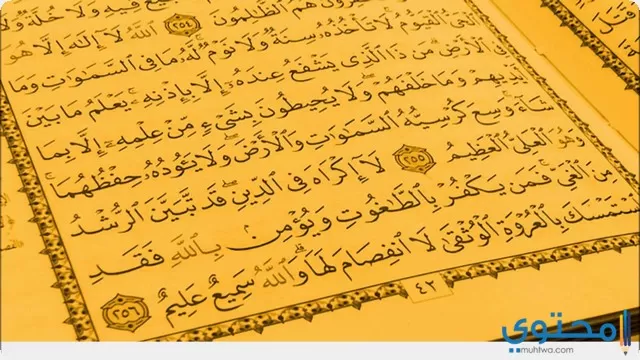 ـرُونَ هُمُ ٱلظَّٰلِمُونَ ٢٥٤ ٱللَّهُ لَآ إِلَٰهَ إِلَّا هُوَ
ٱلْحَىُّ ٱلْقَيُّومُ لَا تَأْخُذُهُۥ سِنَةٌ وَلَا نَوْمٌ لَّهُۥ مَا فِى ٱلسَّمَٰوَٰتِ وَمَا
فِى ٱلْأَرْضِ مَن ذَا ٱلَّذِى يَشْفَعُ عِندَهُۥٓ إِلَّا بِإِذْنِهِۦ يَعْلَمُ مَا بَيْنَ
أَيْدِيهِمْ وَمَا خَلْفَهُمْ وَلَا يُحِيطُونَ بِشَىْءٍ مِّنْ عِلْمِهِۦٓ إِلَّا بِمَا
شَآءَ وَسِعَ كُرْسِيُّهُ ٱلسَّمَٰوَٰتِ وَٱلْأَرْضَ وَلَا يَـُٔودُهُۥ حِفْظُهُمَا
وَهُوَ ٱلْعَلِىُّ ٱلْعَظِيمُ ٢٥٥ لَآ إِكْرَاهَ فِى ٱلدِّينِ قَد تَّبَيَّنَ ٱلرُّشْدُ
مِنَ ٱلْغَىِّ فَمَن يَكْفُرْ بِٱلطَّٰغُوتِ وَيُؤْمِنۢ بِٱللَّهِ فَقَدِ
ٱسْتَمْسَكَ بِٱلْعُرْوَةِ ٱلْوُثْقَىٰ لَا ٱنفِصَامَ لَهَا وَٱللَّهُ سَمِيعٌ عَلِيمٌ ٢٥٦
٤٢
محتوى
muhtwa.com